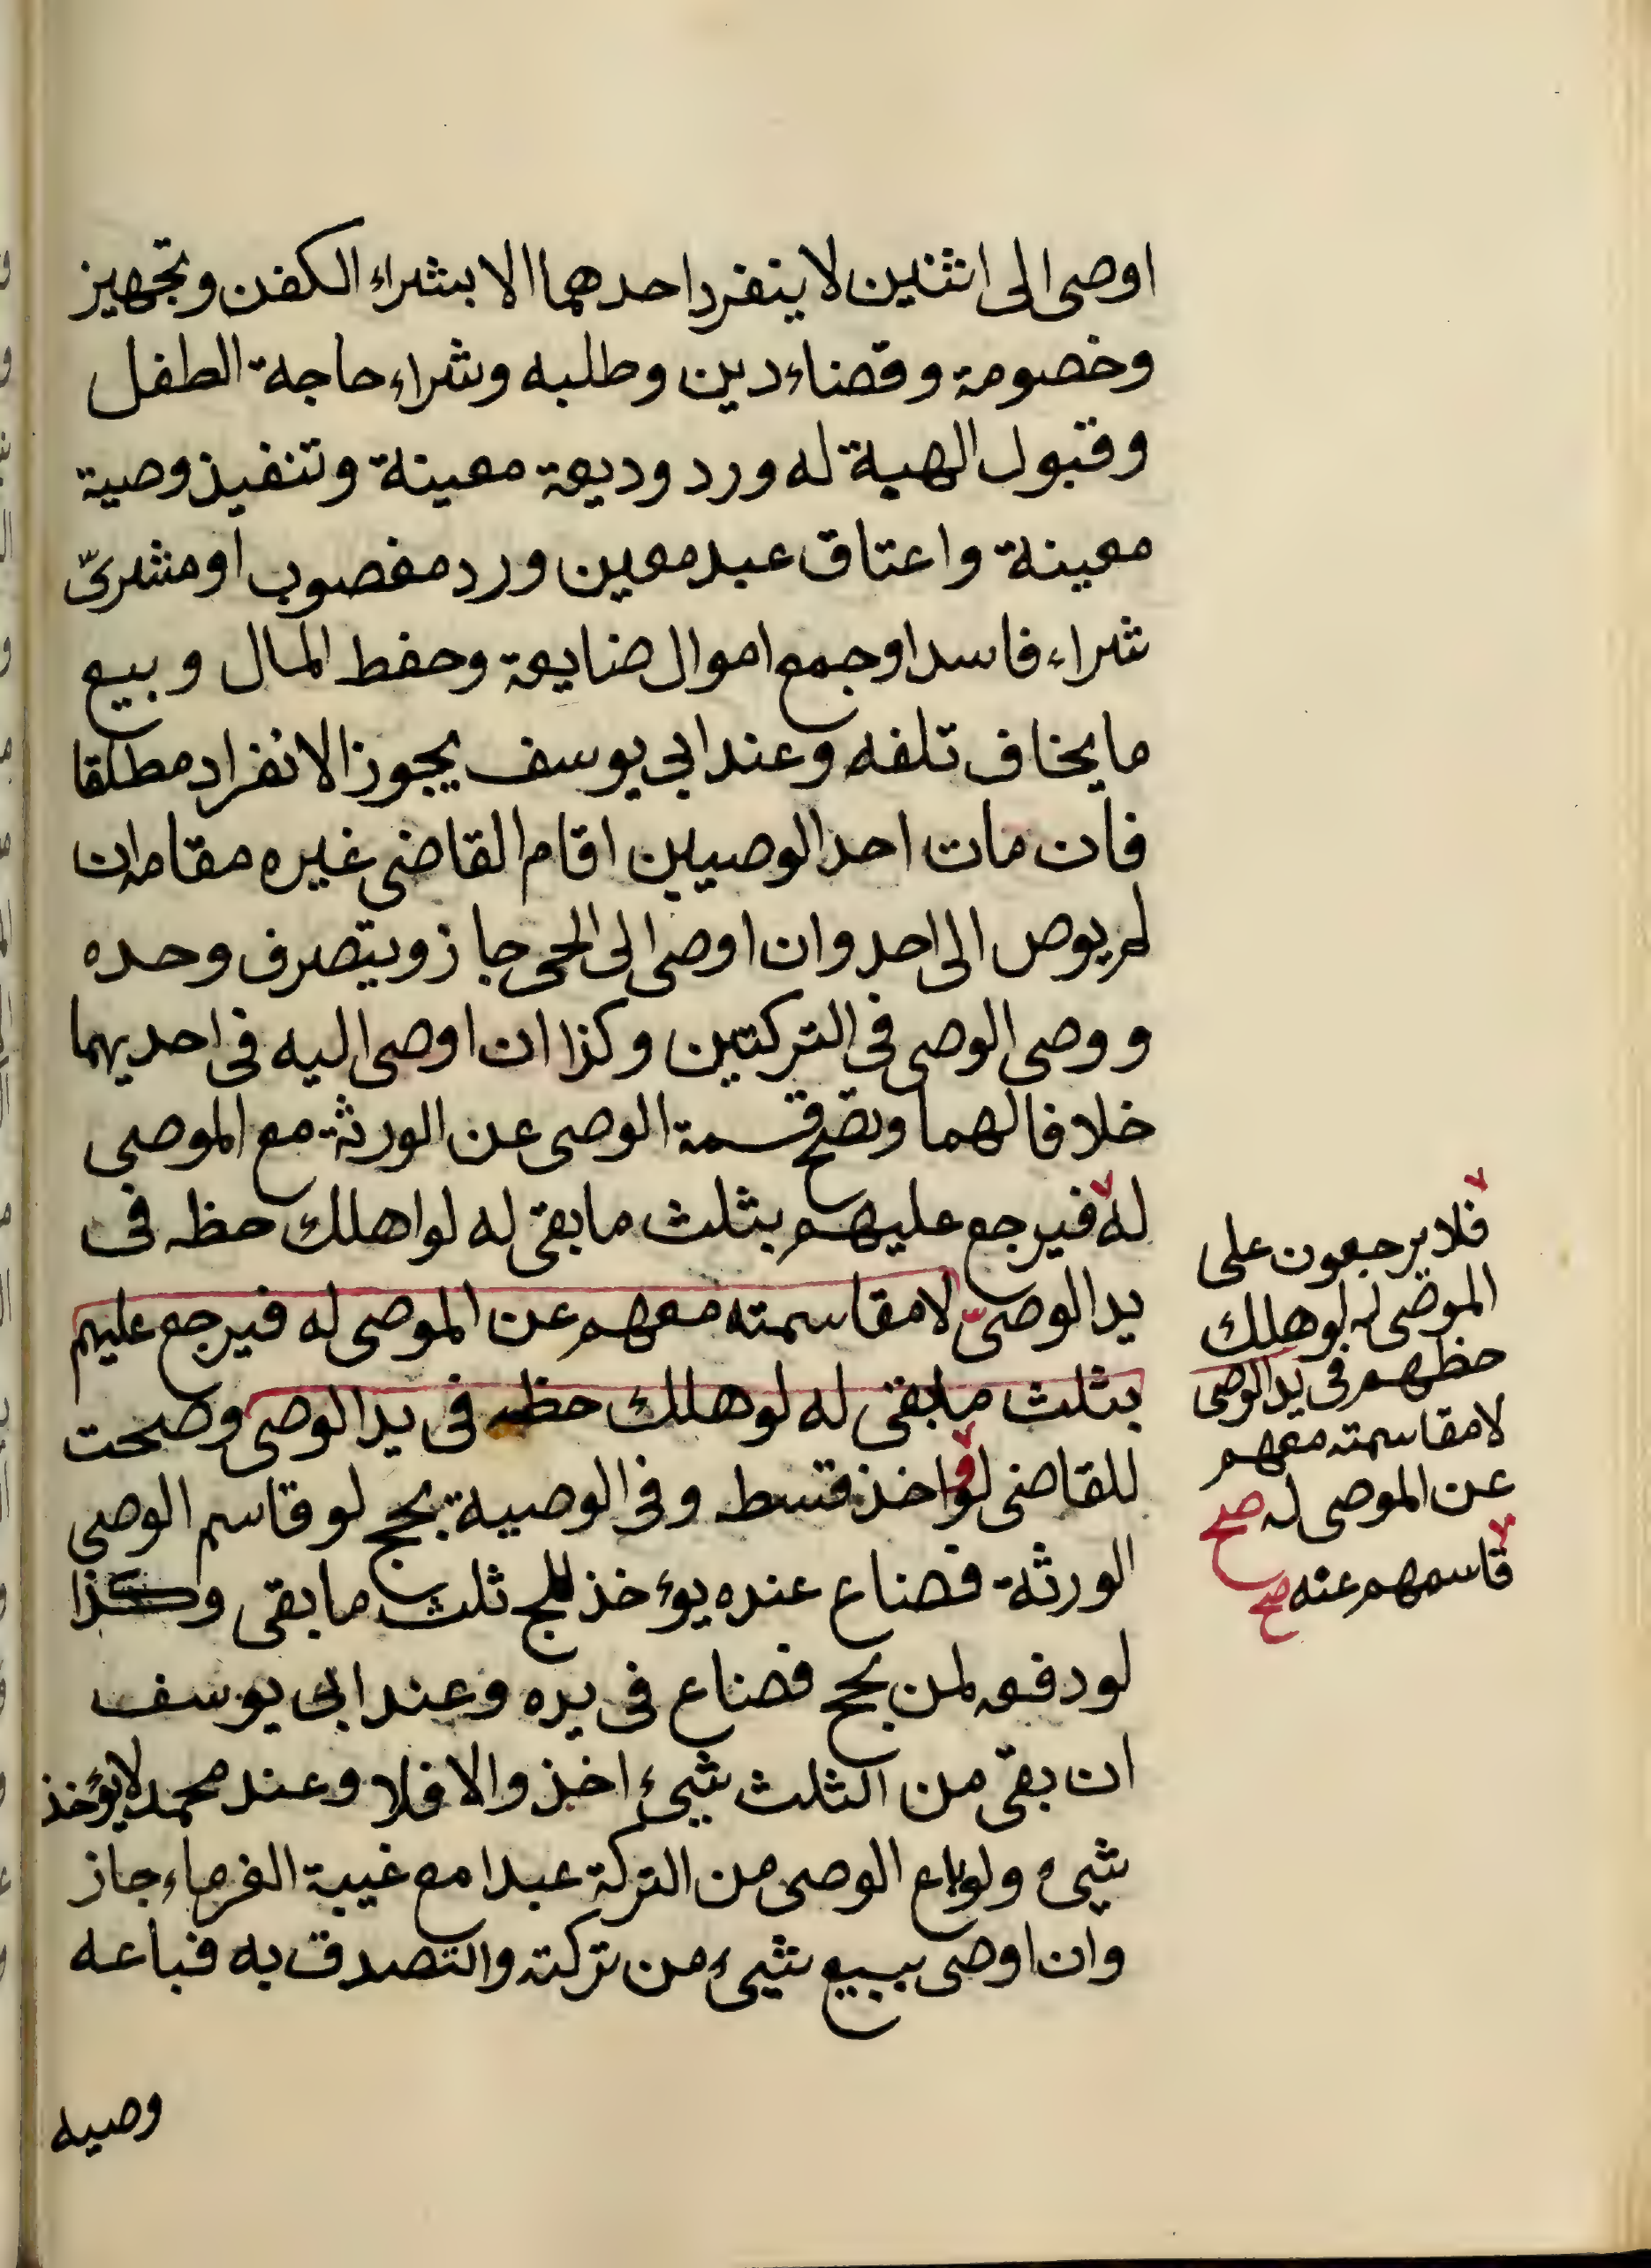 اوصى الى اثنين لا ينفرد احدهما الا بشراء الكفن وتجهيز
وخصومة وقضاء دين وطلبه وشراء حاجة الطفل
وقبول الهبة له ورد وديعة معينة وتنفيذ وصية
معينة واعتاق عبد معين ورد مغصوب او مشرىّ
شراء فاسدا وجمع اموال ضايعة وحفظ المال وبيع
ما يخاف تلفه وعند ابى يوسف يجوز الانفراد مطلقا
فان مات احد الوصيين اقام القاضى غيره مقامه ان
لم يوص الى احد وان اوصى الى الحى جاز ويتصرف وحده
ووصى الوصى فى التركتين وكذا ان اوصى اليه فى احديهما
خلافا لهما وتصح قسمة الوصى عن الورثة مع الموصى
له فيرجع عليهم بثلث ما بقى له لو اهلك حظه فى
يد الوصىّ لا مقاسمته معهم عن الموصى له فيرجع عليهم
بثلث ما بقى له لو هلك حظه فى يد الوصى وصحت
للقاضى لو واخذ قسط وفى الوصية بحج لو قاسم الوصى
الورثة فضاع عنده يؤخذ للحج ثلث ما بقى وكذا
لو دفعه لمن يحج فضاع فى يده وعند ابى يوسف
ان بقى من الثلث شيئ اخذ والا فلا وعند محمد لا يؤخذ
شيء ولو باع الوصى من التركة عبدا مع غيبة الغرماء جاز
وان اوصى ببيع شيئ من تركته والتصدق به فباعه
وصيه
فلا يرجعون على
الموصى له لو هلك
حظهم فى يد الوصى
لا مقاسمته معهم
عن الموصى له صح
قاسمهم عنه صح